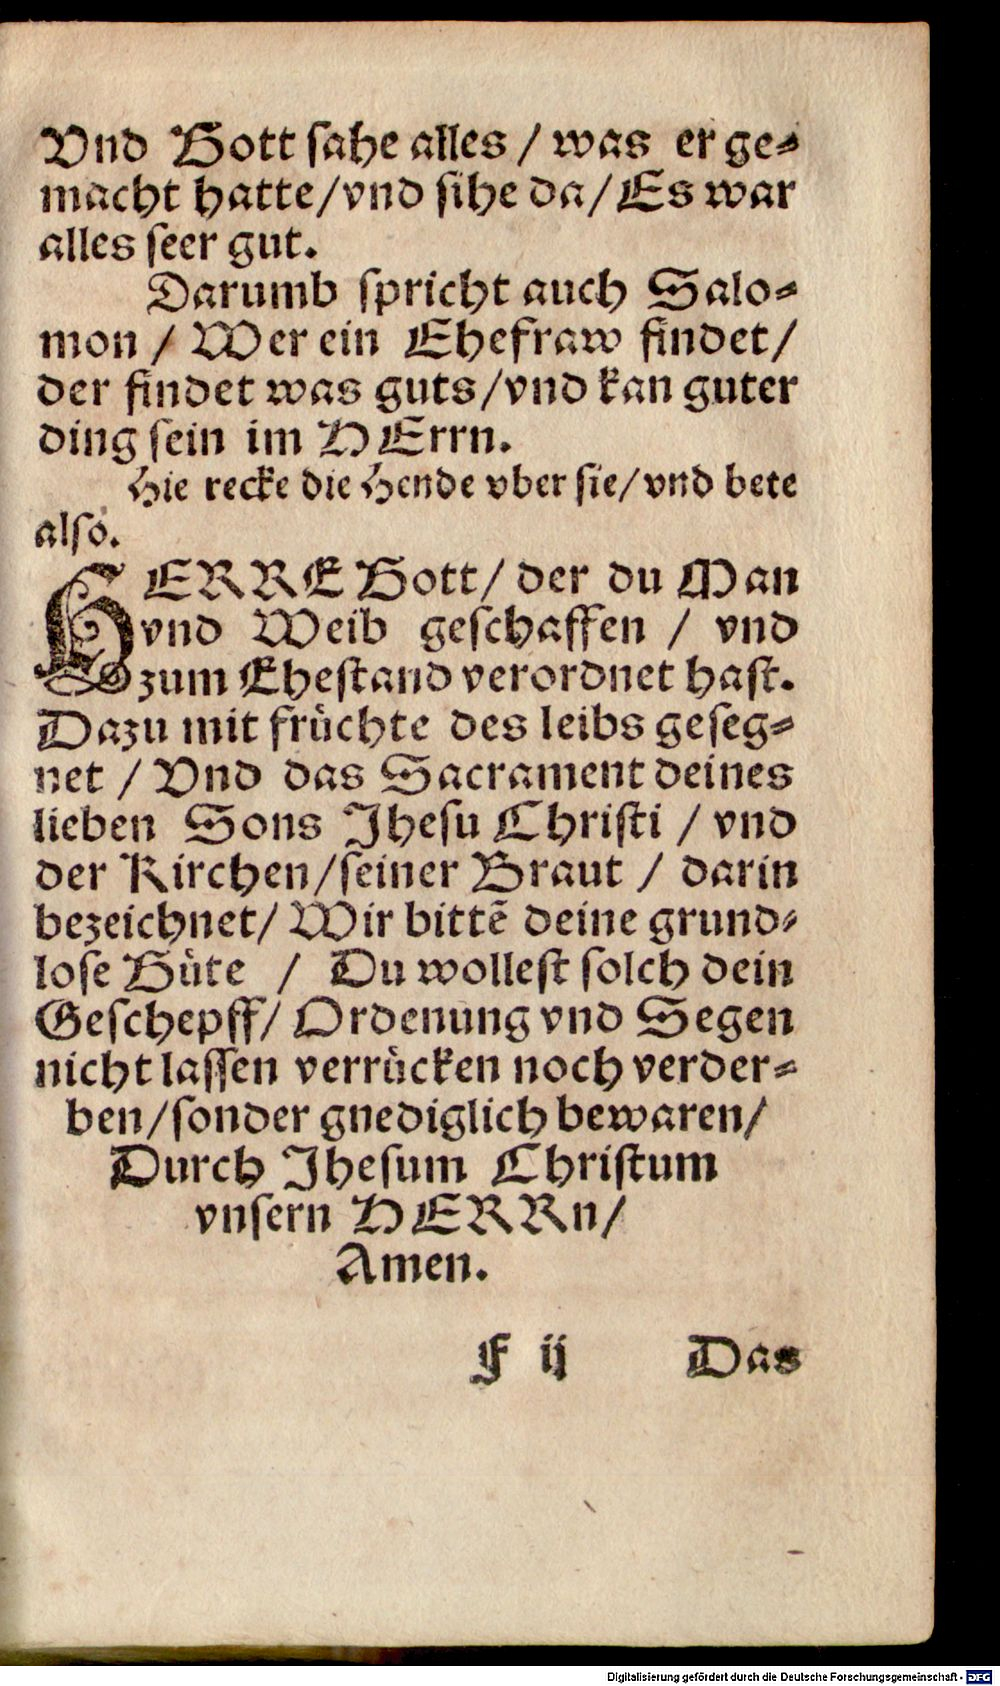 Vnd Gott sahe alles / was er ge-
macht hatte/vnd sihe da/Es war
alles seer gut.
Darumb spricht auch Salo-
mon / Wer ein Ehefraw findet/
der findet was guts/vnd kan guter
ding sein im HErrn.
Hie recke die Hende vber sie/vnd bete
also.
HERRE Gott/ der du Man
vnd Weib geschaffen / vnd
zum Ehestand verordnet hast.
Dazu mit früchte des leibs geseg-
net / Vnd das Sacrament deines
lieben Sons Jhesu Christi / vnd
der Kirchen/seiner Braut / darin
bezeichnet/ Wir bittē deine grund-
lose Güte / Du wollest solch dein
Geschepff/ Ordenung vnd Segen
nicht lassen verrücken noch verder-
ben/sonder gnediglich bewaren/
Durch Jhesum Christum
vnsern HERRn/
Amen.
F ij Das
Digitalisierung gefördert durch die Deutsche Forschungsgemeinschaft - DFG